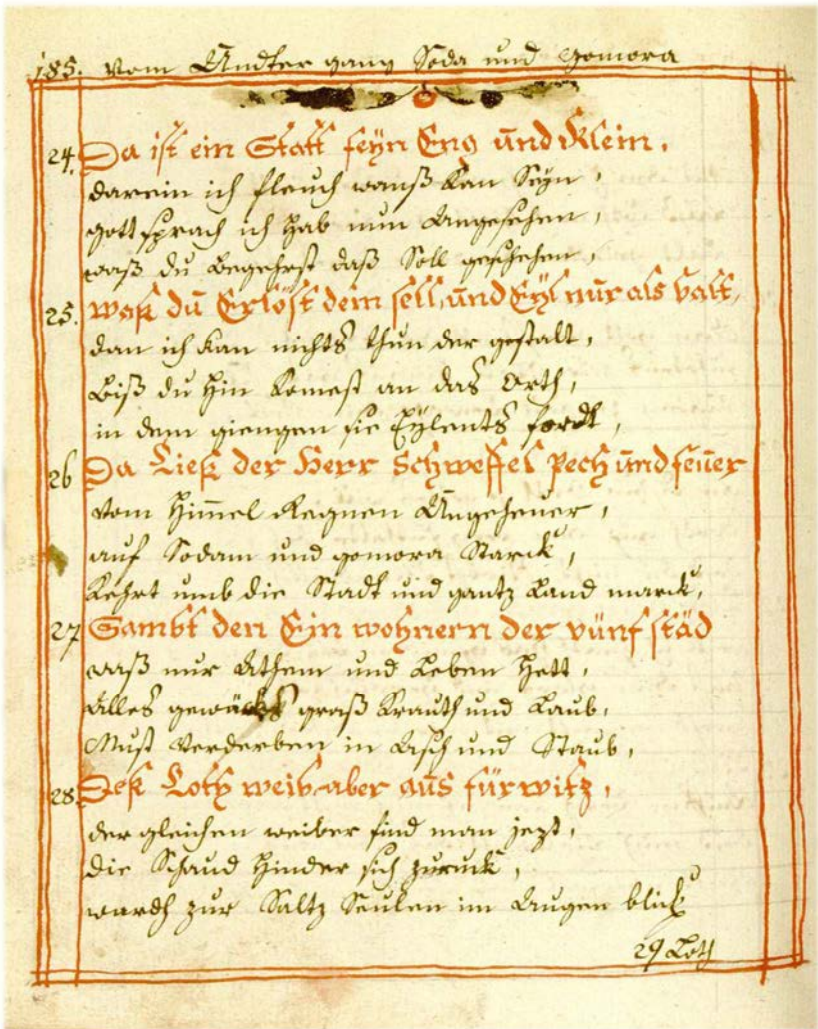 185. Vom Undter gang Soda und gomora
24. Da ist ein Statt feyn Eng und Klein,
darein ich fleuch wanß kan Seyn,
gott sprach ich hab nun Angesehen,
waß du Begehrst daß Soll geschehen,
25. waß du Erlöst dem sell, und Eyl nur als balt,
dan ich kan nichts thun der gestalt,
Biß du hin komest an das Orth,
in dem giengen sie Eylents fordt,
26 Da Ließ der Herr Schweffel Pech und feuer
vom Himmel Regnen Ungeheuer,
auf Sodam und gomora Starck,
Kehrt umb die Stadt und gantz Land marck,
27 Sambt den Ein wohnern der vünf städ
waß nur Athem und Leben Hett,
Alles gewächs graß Krauth und Laub,
Must Verderben in Asch und Staub,
28 Deß Loth weib aber aus fürwitz,
der gleichen weiber find man jezt,
die Schaud hinder sich zuruck,
wardh zur Saltz Seulen im Augen blick
29 Loth